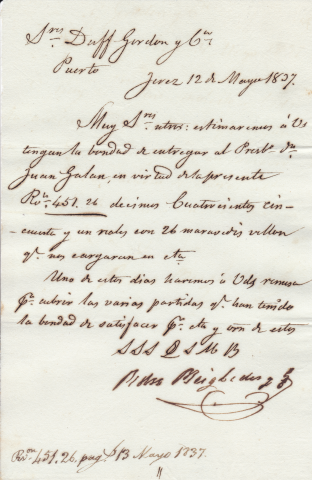 Sres Duff Gordon y Ca
Puerto
Jerez 12 de Mayo 1837.
Muy Sres ntros: estimaremos á Vs
tengan la bondad de entregar al Presbo dn
Juan Galan, en virtud de la presente
Rvn 451. 26 decimos Cuatrocientos cin-
-cuenta y un reales con 26 maravedis vellon
qe nos cargaran en cta
Uno de estos dias haremos á Vds remesa
pa cubrir las varias partidas qe han tenido
la bondad de satisfacer pr cta y orn de estos
SSS Q S M B
Rvn 451. 26. pag. 13 Mayo 1837.